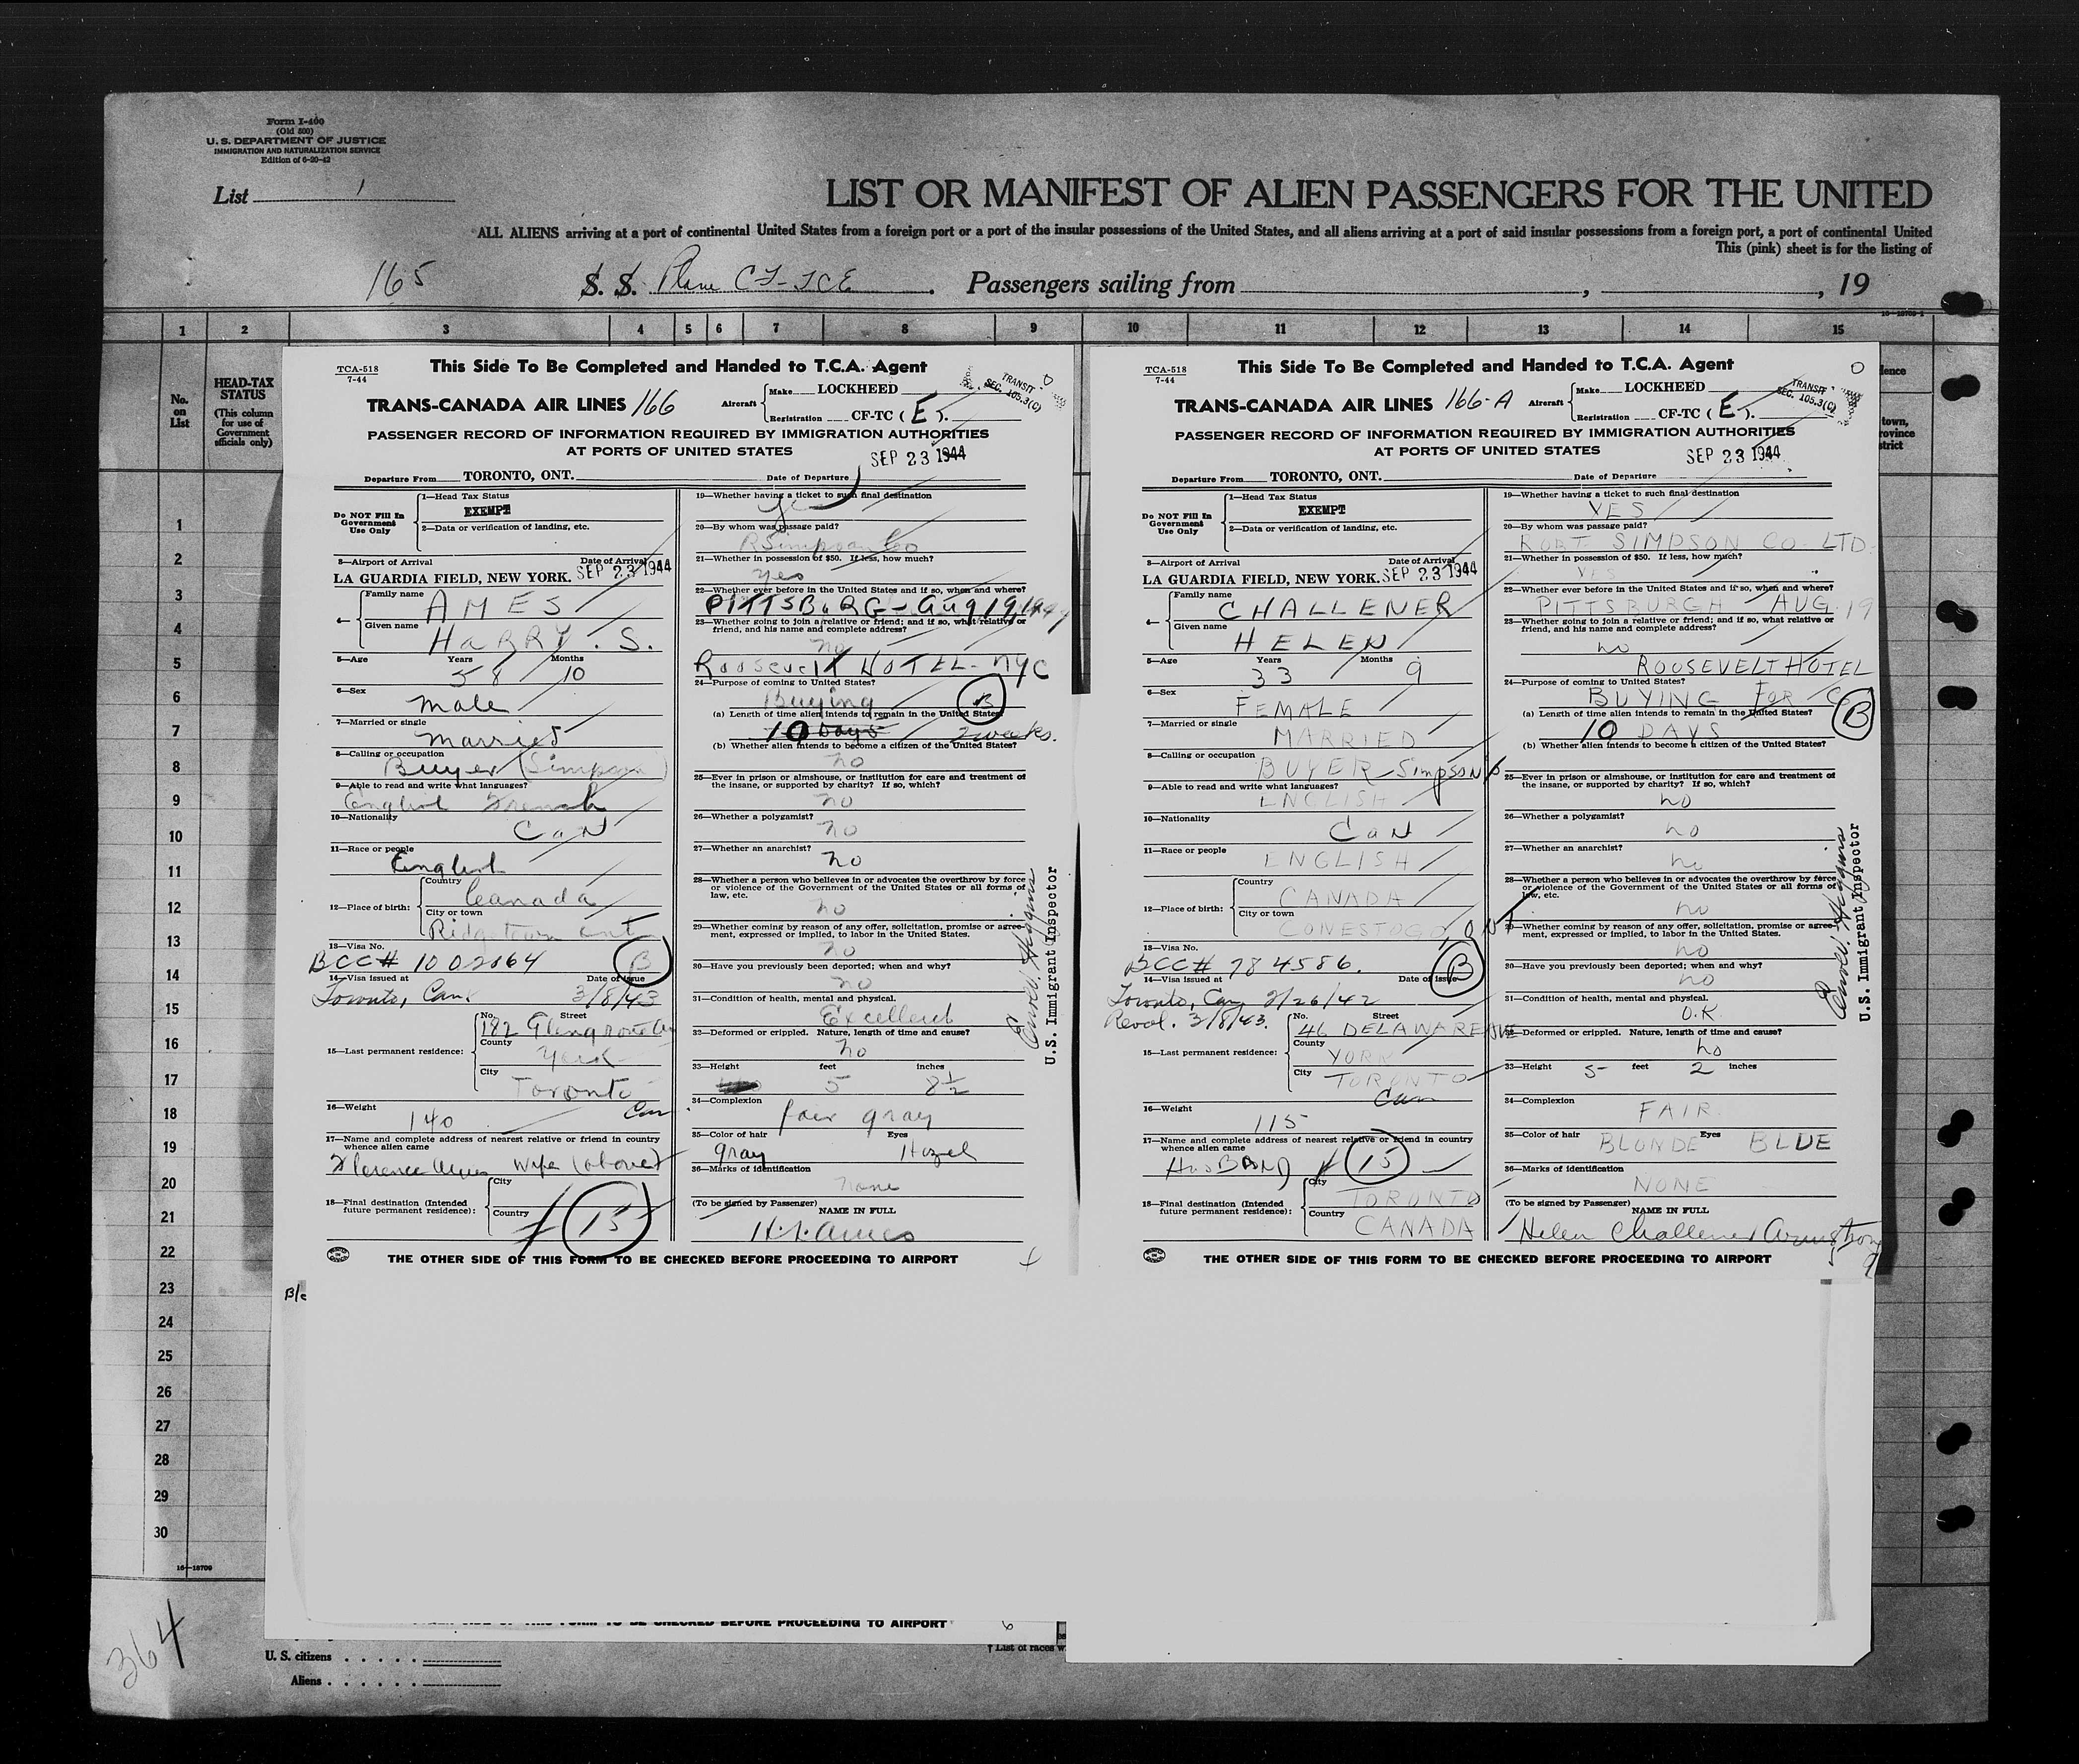 Form I-400
(Old 500)
U. S. DEPARTMENT OF JUSTICE
IMMIGRATION AND NATURALIZATION SERVICE
Edition of 6-20-42
List 1
LIST OR MANIFEST OF ALIEN PASSENGERS FOR THE UNITED
ALL ALIENS arriving at a port of continental United States from a foreign port or a port of the insular possessions of the United States, and all aliens arriving at a port of said insular possessions from a foreign port, a port of continental United
This (pink) sheet is for the listing of
165 S. S. Plane CF-TCE. Passengers sailing from , , 19
1 2 3 4 5 6 7 8 9 10 11 12 13 14 15
No. on List
HEAD-TAX STATUS
(This column for use of Government officials only)
1
2
3
4
5
6
7
8
9
10
11
12
13
14
15
16
17
18
19
20
21
22
23
24
25
26
27
28
29
30
16-18709
364
TCA-518
7-44
This Side To Be Completed and Handed to T.C.A. Agent
TRANS-CANADA AIR LINES 166
Aircraft Make LOCKHEED
Registration CF-TC ( E ).
TRANSIT
SEC. 105.3(C)
PASSENGER RECORD OF INFORMATION REQUIRED BY IMMIGRATION AUTHORITIES
AT PORTS OF UNITED STATES
SEP 23 1944
Departure From TORONTO, ONT. Date of Departure
Do NOT Fill In Government Use Only
1—Head Tax Status
EXEMPT
2—Data or verification of landing, etc.
3—Airport of Arrival Date of Arrival
LA GUARDIA FIELD, NEW YORK. SEP 23 1944
4— Family name AMES
Given name HARRY. S.
5—Age Years 58 Months 10
6—Sex
Male
7—Married or single
Married
8—Calling or occupation
Buyer (Simpson)
9—Able to read and write what languages?
English French
10—Nationality
CaN
11—Race or people
English
12—Place of birth: Country Canada
City or town Ridgetown Ont
13—Visa No.
BCC# 1002064 B
14—Visa issued at Date of issue
Toronto, Can. 3/8/43
15—Last permanent residence: No. Street
182 Glengrove Av
County York
City Toronto
Can
16—Weight
140
17—Name and complete address of nearest relative or friend in country whence alien came
Florence Ames Wife (above)
18—Final destination (Intended future permanent residence): City
Country
15
19—Whether having a ticket to such final destination
Yes
20—By whom was passage paid?
R Simpson Co
21—Whether in possession of $50. If less, how much?
Yes
22—Whether ever before in the United States and if so, when and where?
PITTSBuRG - Aug 19, 1944
23—Whether going to join a relative or friend; and if so, what relative or friend, and his name and complete address?
no
Roosevelt HOTEL - NYC
24—Purpose of coming to United States?
Buying B
(a) Length of time alien intends to remain in the United States
10 Days 2 weeks.
(b) Whether alien intends to become a citizen of the United States?
no
25—Ever in prison or almshouse, or institution for care and treatment of the insane, or supported by charity? If so, which?
no
26—Whether a polygamist?
no
27—Whether an anarchist?
no
28—Whether a person who believes in or advocates the overthrow by force or violence of the Government of the United States or all forms of law, etc.
no
29—Whether coming by reason of any offer, solicitation, promise or agreement, expressed or implied, to labor in the United States.
no
30—Have you previously been deported; when and why?
no
31—Condition of health, mental and physical.
Excellent
32—Deformed or crippled. Nature, length of time and cause?
no
33—Height feet inches
5 8½
34—Complexion
fair gray
35—Color of hair Eyes
gray Hazel
36—Marks of identification
none
(To be signed by Passenger) NAME IN FULL
H.S. Ames
U.S. Immigrant Inspector
THE OTHER SIDE OF THIS FORM TO BE CHECKED BEFORE PROCEEDING TO AIRPORT
TCA-518
7-44
This Side To Be Completed and Handed to T.C.A. Agent
TRANS-CANADA AIR LINES 166-A
Aircraft Make LOCKHEED
Registration CF-TC ( E ).
TRANSIT
SEC. 105.3(C)
PASSENGER RECORD OF INFORMATION REQUIRED BY IMMIGRATION AUTHORITIES
AT PORTS OF UNITED STATES
SEP 23 1944
Departure From TORONTO, ONT. Date of Departure
Do NOT Fill In Government Use Only
1—Head Tax Status
EXEMPT
2—Data or verification of landing, etc.
3—Airport of Arrival Date of Arrival
LA GUARDIA FIELD, NEW YORK. SEP 23 1944
4— Family name CHALLENER
Given name HELEN
5—Age Years 33 Months 9
6—Sex
FEMALE
7—Married or single
MARRIED
8—Calling or occupation
BUYER - Simpson
9—Able to read and write what languages?
ENGLISH
10—Nationality
CaN
11—Race or people
ENGLISH
12—Place of birth: Country CANADA
City or town CONESTOGO, ONT
13—Visa No.
BCC# 784586. B
14—Visa issued at Date of issue
Toronto, Can. 2/26/42
Reval. 3/8/43.
15—Last permanent residence: No. Street
46 DELAWARE AVE
County YORK
City TORONTO
Can
16—Weight
115
17—Name and complete address of nearest relative or friend in country whence alien came
HUSBAND 15
18—Final destination (Intended future permanent residence): City TORONTO
Country CANADA
19—Whether having a ticket to such final destination
YES
20—By whom was passage paid?
ROBT SIMPSON CO. LTD.
21—Whether in possession of $50. If less, how much?
YES
22—Whether ever before in the United States and if so, when and where?
PITTSBURGH AUG. 19
23—Whether going to join a relative or friend; and if so, what relative or friend, and his name and complete address?
no
ROOSEVELT HOTEL
24—Purpose of coming to United States?
BUYING FOR CO B
(a) Length of time alien intends to remain in the United States?
10 DAYS
(b) Whether alien intends to become a citizen of the United States?
25—Ever in prison or almshouse, or institution for care and treatment of the insane, or supported by charity? If so, which?
no
26—Whether a polygamist?
no
27—Whether an anarchist?
no
28—Whether a person who believes in or advocates the overthrow by force or violence of the Government of the United States or all forms of law, etc.
no
29—Whether coming by reason of any offer, solicitation, promise or agreement, expressed or implied, to labor in the United States.
no
30—Have you previously been deported; when and why?
no
31—Condition of health, mental and physical.
O.K.
32—Deformed or crippled. Nature, length of time and cause?
no
33—Height 5 feet 2 inches
34—Complexion
FAIR
35—Color of hair BLONDE Eyes BLUE
36—Marks of identification
NONE
(To be signed by Passenger) NAME IN FULL
Helen Challener Armstrong
U.S. Immigrant Inspector
THE OTHER SIDE OF THIS FORM TO BE CHECKED BEFORE PROCEEDING TO AIRPORT
B/c
SIDE OF THIS FORM TO BE CHECKED BEFORE PROCEEDING TO AIRPORT
6
U. S. citizens
Aliens
† List of races